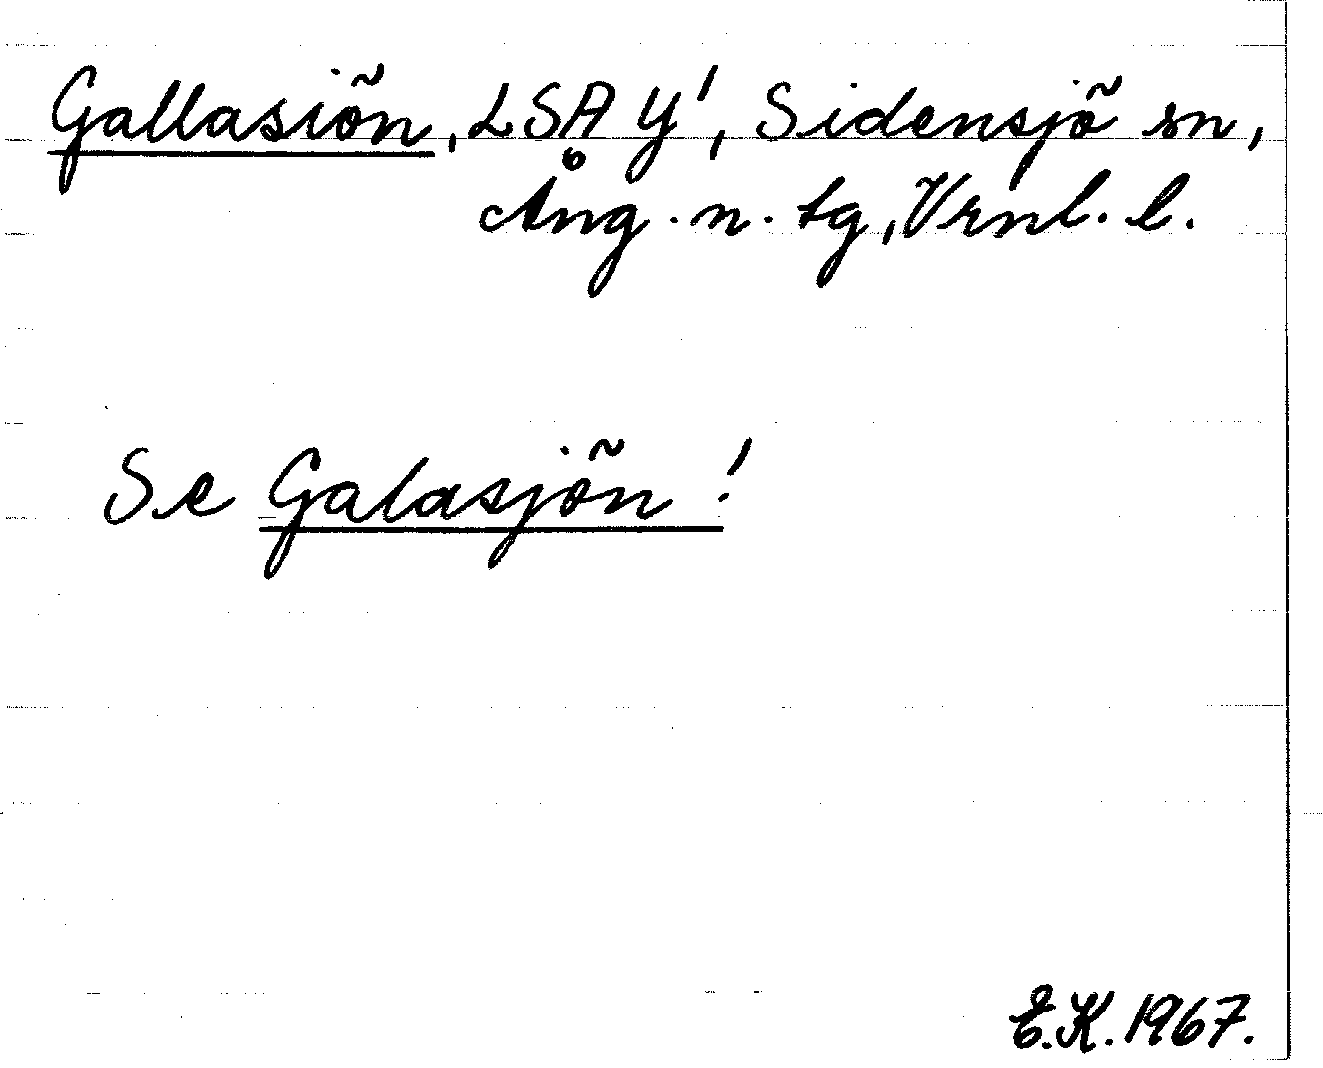 Gallasiön, LSA Y', Sidensjö sn,
Ång. n. tg, Vrnl. l.
Se Galasjön!
E.K. 1967.